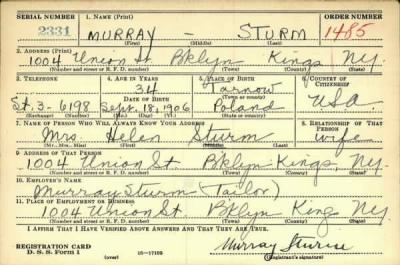 SERIAL NUMBER 1. NAME (Print) ORDER NUMBER
2331 MURRAY — STURM 1485
(First) (Middle) (Last)
2. ADDRESS (Print)
1004 Union St. Bklyn Kings N.Y.
(Number and street or R. F. D. number) (Town) (County) (State)
3. TELEPHONE 4. AGE IN YEARS 5. PLACE OF BIRTH 6. COUNTRY OF CITIZENSHIP
34 Tarnow
DATE OF BIRTH (Town or county)
St. 3-6198 Sept. 18, 1906 Poland USA
(Exchange) (Number) (Mo.) (Day) (Yr.) (State or country)
7. NAME OF PERSON WHO WILL ALWAYS KNOW YOUR ADDRESS 8. RELATIONSHIP OF THAT PERSON
Mrs. Helen Sturm wife
(Mr., Mrs., Miss) (First) (Middle) (Last)
9. ADDRESS OF THAT PERSON
1004 Union St Bklyn Kings, N.Y.
(Number and street or R. F. D. number) (Town) (County) (State)
10. EMPLOYER'S NAME
Murray Sturm (Tailor)
11. PLACE OF EMPLOYMENT OR BUSINESS
1004 Union St. Bklyn Kings N.Y.
(Number and street or R. F. D. number) (Town) (County) (State)
I AFFIRM THAT I HAVE VERIFIED ABOVE ANSWERS AND THAT THEY ARE TRUE.
REGISTRATION CARD
D. S. S. Form 1 (over) Murray Sturm
(Registrant's signature)